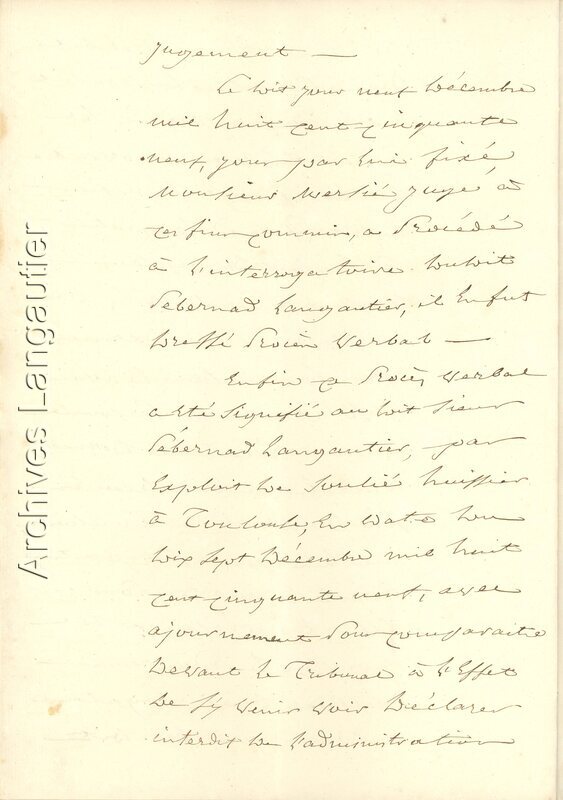 jugement —
Le dit jour neuf Décembre
mil huit cent cinquante
neuf, jour par lui fixé,
Monsieur Juge à
ces fins commis, a Procédé
à l'interrogatoire du dit
Sébernad Langautier, il en fut
dressé Procès Verbal —
Enfin ce Procès Verbal
a été signifié au dit Sieur
Sébernad Langautier, par
Exploit de Soulié huissier
à Toulouse, En date du
dix sept Décembre mil huit
cent cinquante neuf, avec
ajournement Pour comparaitre
Devant le Tribunal à l'Effet
de s'y venir voir Déclarer
interdit de l'administration
Archives Langautier